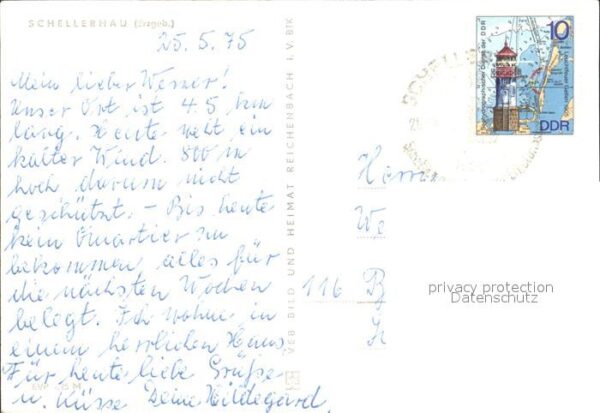 SCHELLERHAU (Erzgeb.)
25.5.75
Mein lieber Werner!
Unser Ort ist 4.5 km
lang. Heute weht ein
kalter Wind. 800 m
hoch darum nicht
geschützt. - Bis heute
kein Quartier zu
bekommen, alles für
die nächsten Wochen
belegt. Ich wohne in
einem herrlichen Haus.
Für heute liebe Grüße
u. Küsse Deine Hildegard.
VEB BILD UND HEIMAT REICHENBACH I. V. BfK
10
DDR
Herrn
We
116 B
privacy protection
Datenschutz